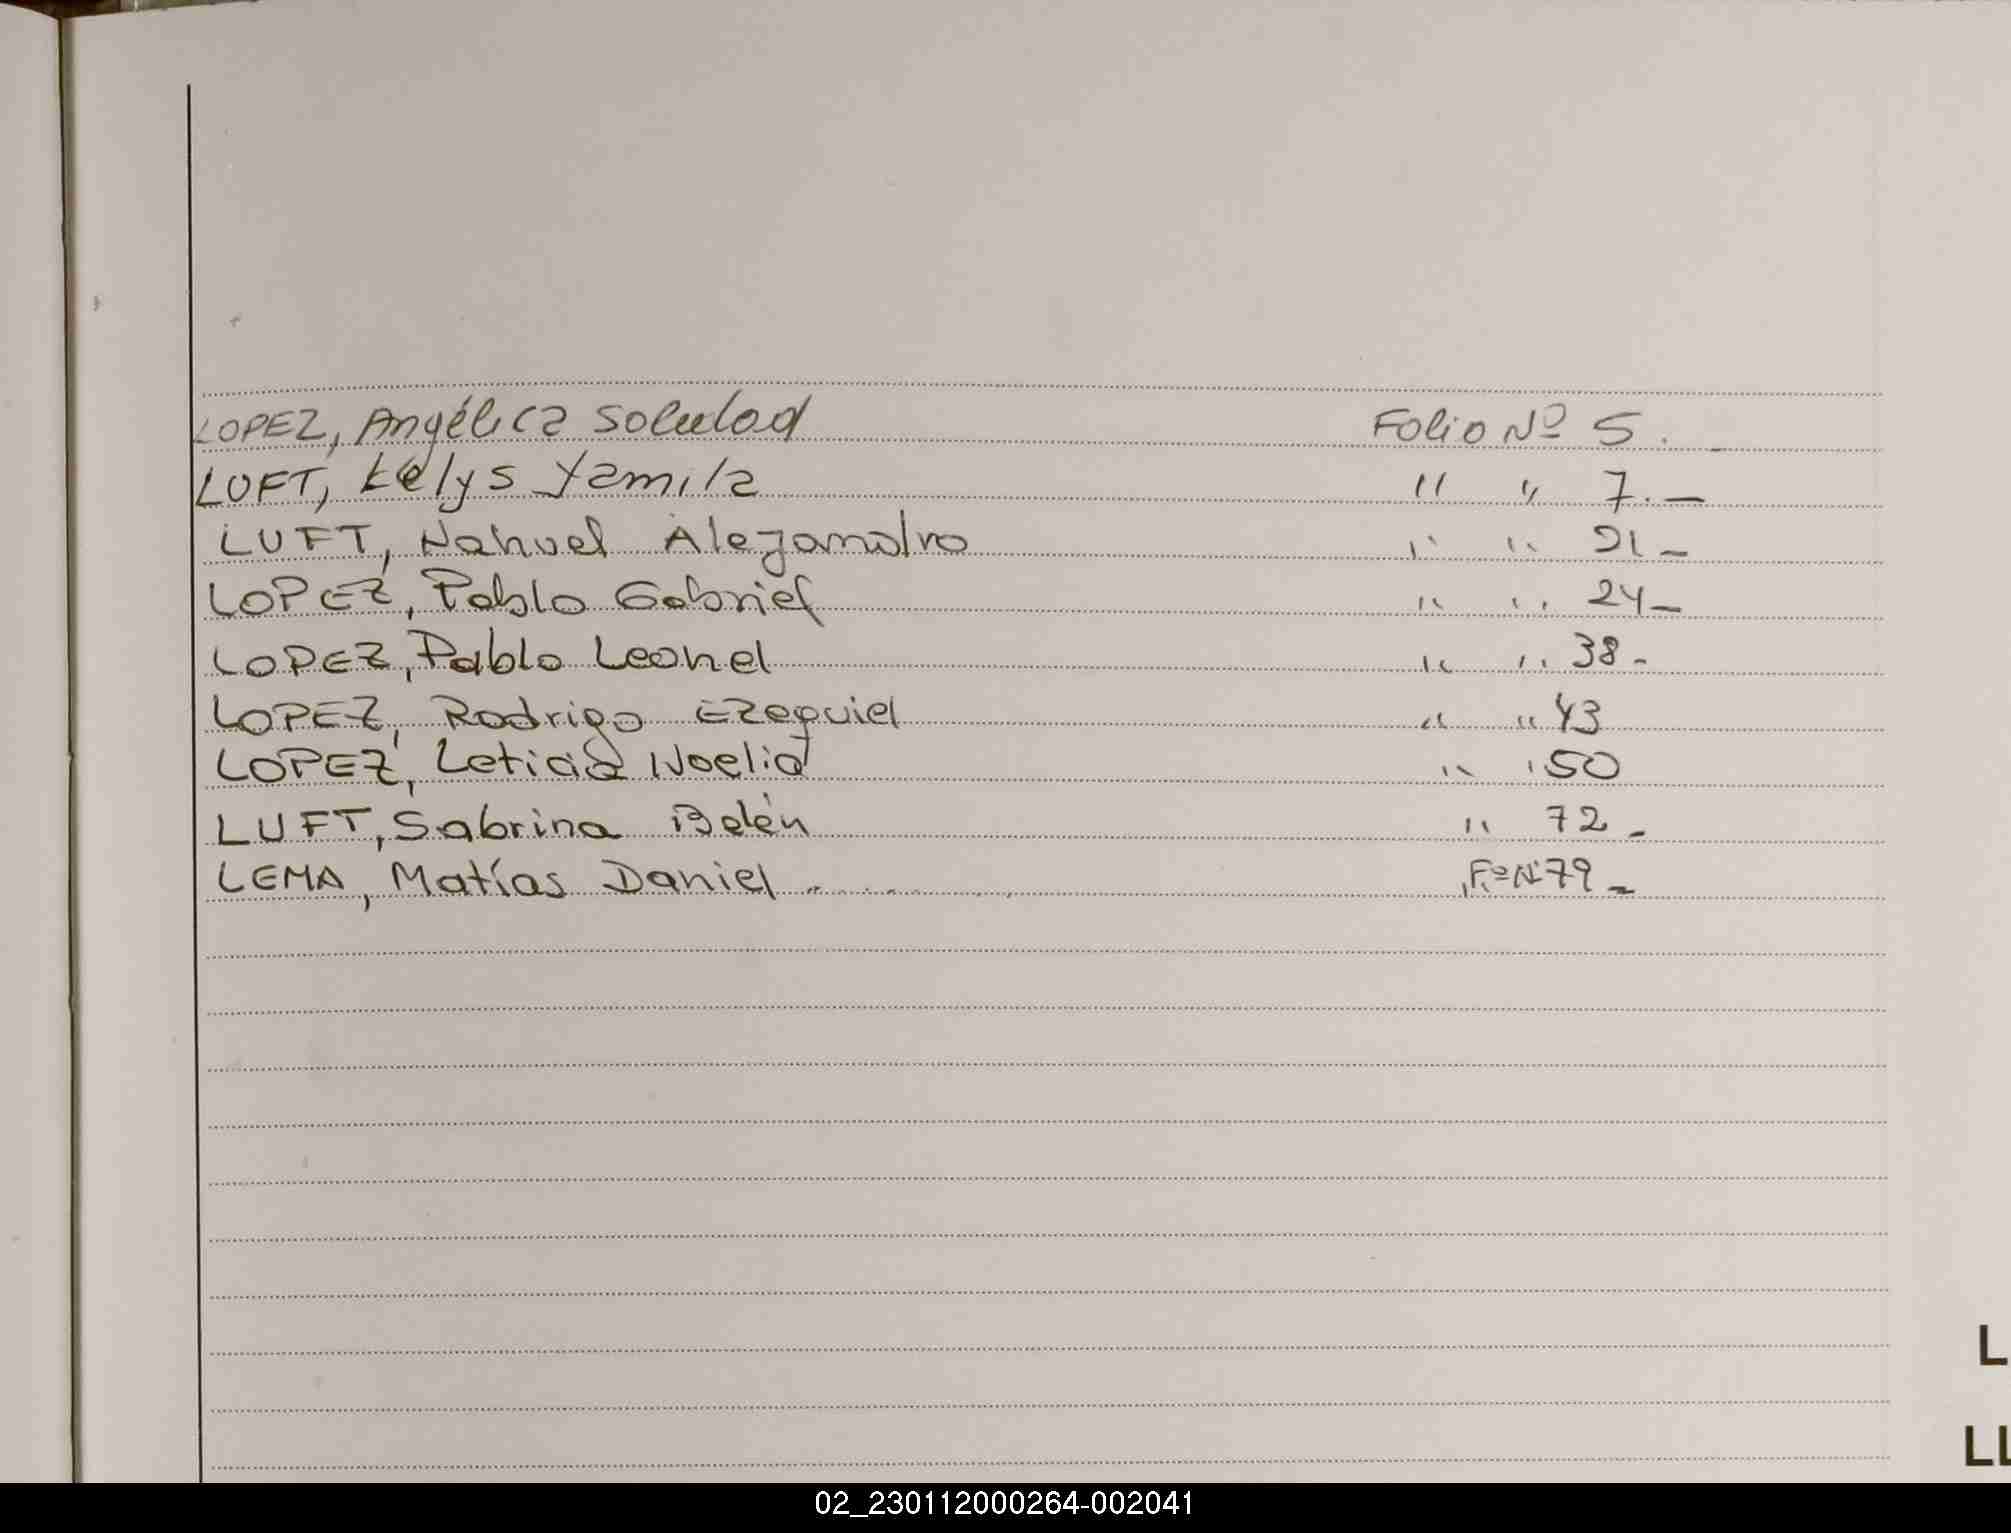 LOPEZ, Angélica Soledad Folio Nº 5. _
LUFT, Kelys Yamila " " 7. _
LUFT, Nahuel Alejandro " " 21 _
LOPEZ, Pablo Gabriel " " 24 _
LOPEZ, Pablo Leonel " " 38 -
LOPEZ, Rodrigo Ezequiel " " 43
LOPEZ, Leticia Noelia " " 50
LUFT, Sabrina Belén " 72 -
LEMA, Matías Daniel Fº Nº 79 _
L
LL
02_230112000264-002041